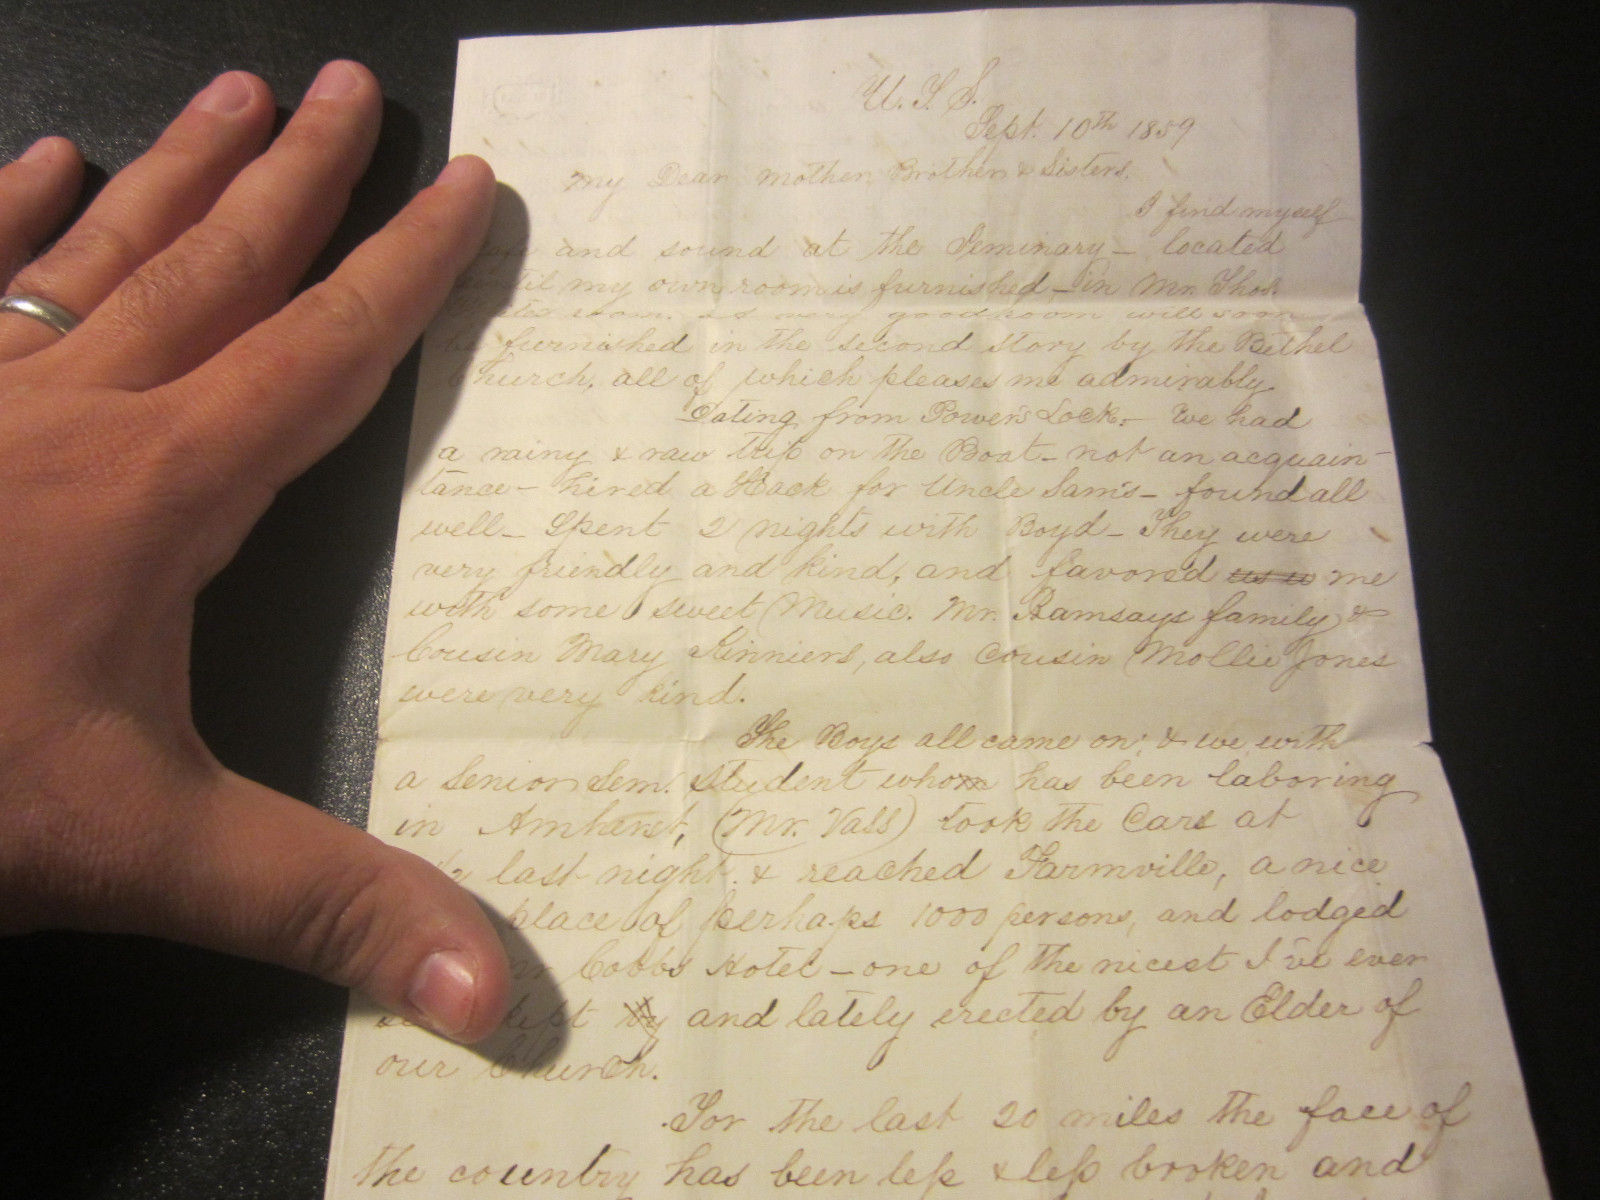 U. T. S.
Sept. 10th 1859
My Dear Mother, Brother & Sisters.
I find myself
safe and sound at the Seminary – located
until my own room is furnished – in Mr. Thos.
room. A very good room will soon
be furnished in the second story by the Bethel
Church, all of which pleases me admirably.
Dating from Power's Lock. – We had
a rainy & raw trip on the Boat – not an acquain-
tance – hired a Hack for Uncle Sam's – found all
well – Spent 2 nights with Boyd – They were
very friendly and kind, and favored us w me
with some sweet Music. Mr. Ramsays family &
Cousin Mary Kinniers, also Cousin Mollie Jones
were very kind.
The Boys all came on; & we with
a Senior Sem. student whom has been laboring
in Amherst, (Mr. Vass) took the Cars at
last night. & reached Farmville, a nice
place of perhaps 1000 persons, and lodged
Cobbs Hotel – one of the nicest I've ever
kept by and lately erected by an Elder of
our Church.
For the last 20 miles the face of
the country has been less & less broken and